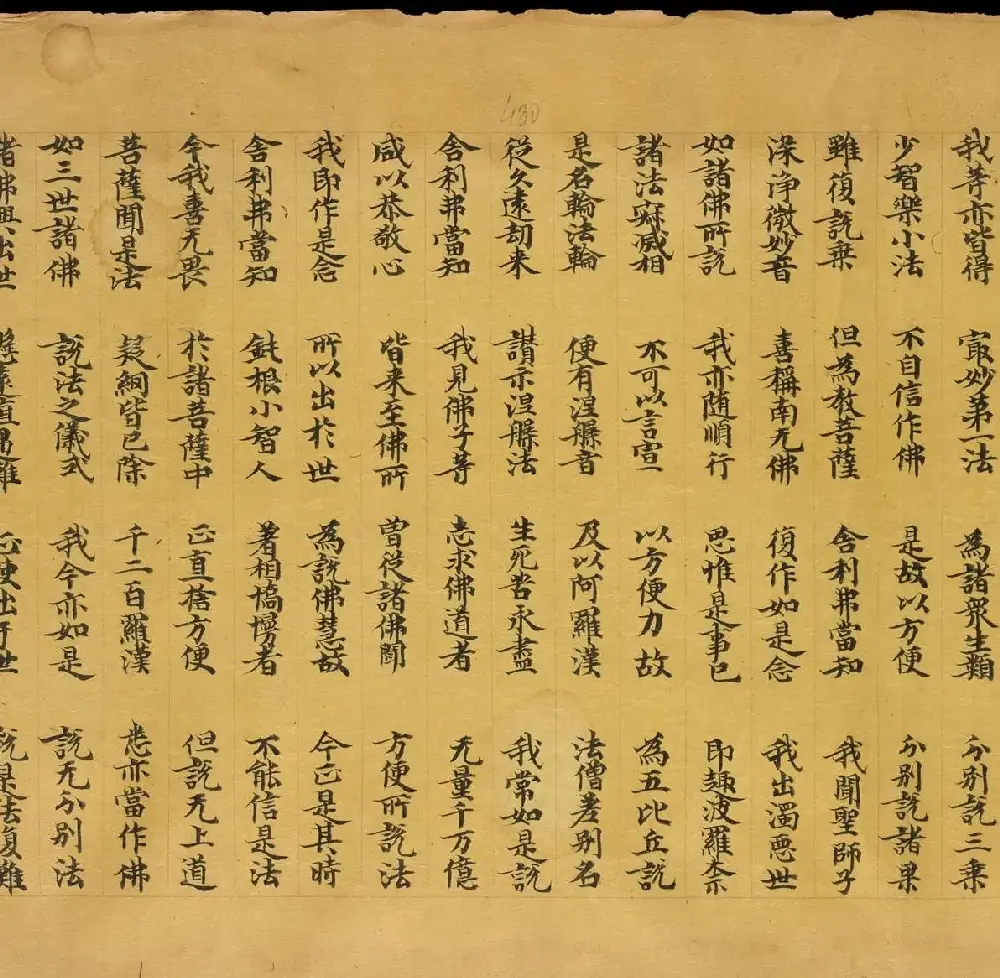 430
我等亦皆得 㝡妙第一法 為諸衆生類 分別說三乗
少智樂小法 不自信作佛 是故以方便 分別說諸果
雖復說乗 但為教菩薩 舍利弗當知 我聞聖師子
深淨微妙音 善稱南无佛 復作如是念 我出濁惡世
如諸佛所說 我亦随順行 思惟是事已 即趣波羅柰
諸法寂滅相 不可以言宣 以方便力故 為五比丘說
是名輪法輪 便有涅槃音 及以阿羅漢 法僧差別名
從久遠劫来 讚示涅槃法 生死苦永盡 我常如是說
舍利弗當知 我見佛子等 志求佛道者 无量千万億
咸以恭敬心 皆来至佛所 曽從諸佛聞 方便所說法
我即作是念 所以出於世 為說佛慧故 今正是其時
舍利弗當知 鈍根小智人 著相憍慢者 不能信是法
今我喜无畏 於諸菩薩中 正直捨方便 但說无上道
菩薩聞是法 疑網皆已除 千二百羅漢 悉亦當作佛
如三世諸佛 說法之儀式 我今亦如是 說无分別法
諸佛興出世 懸遠值遇難 正使出于世 說是法復難